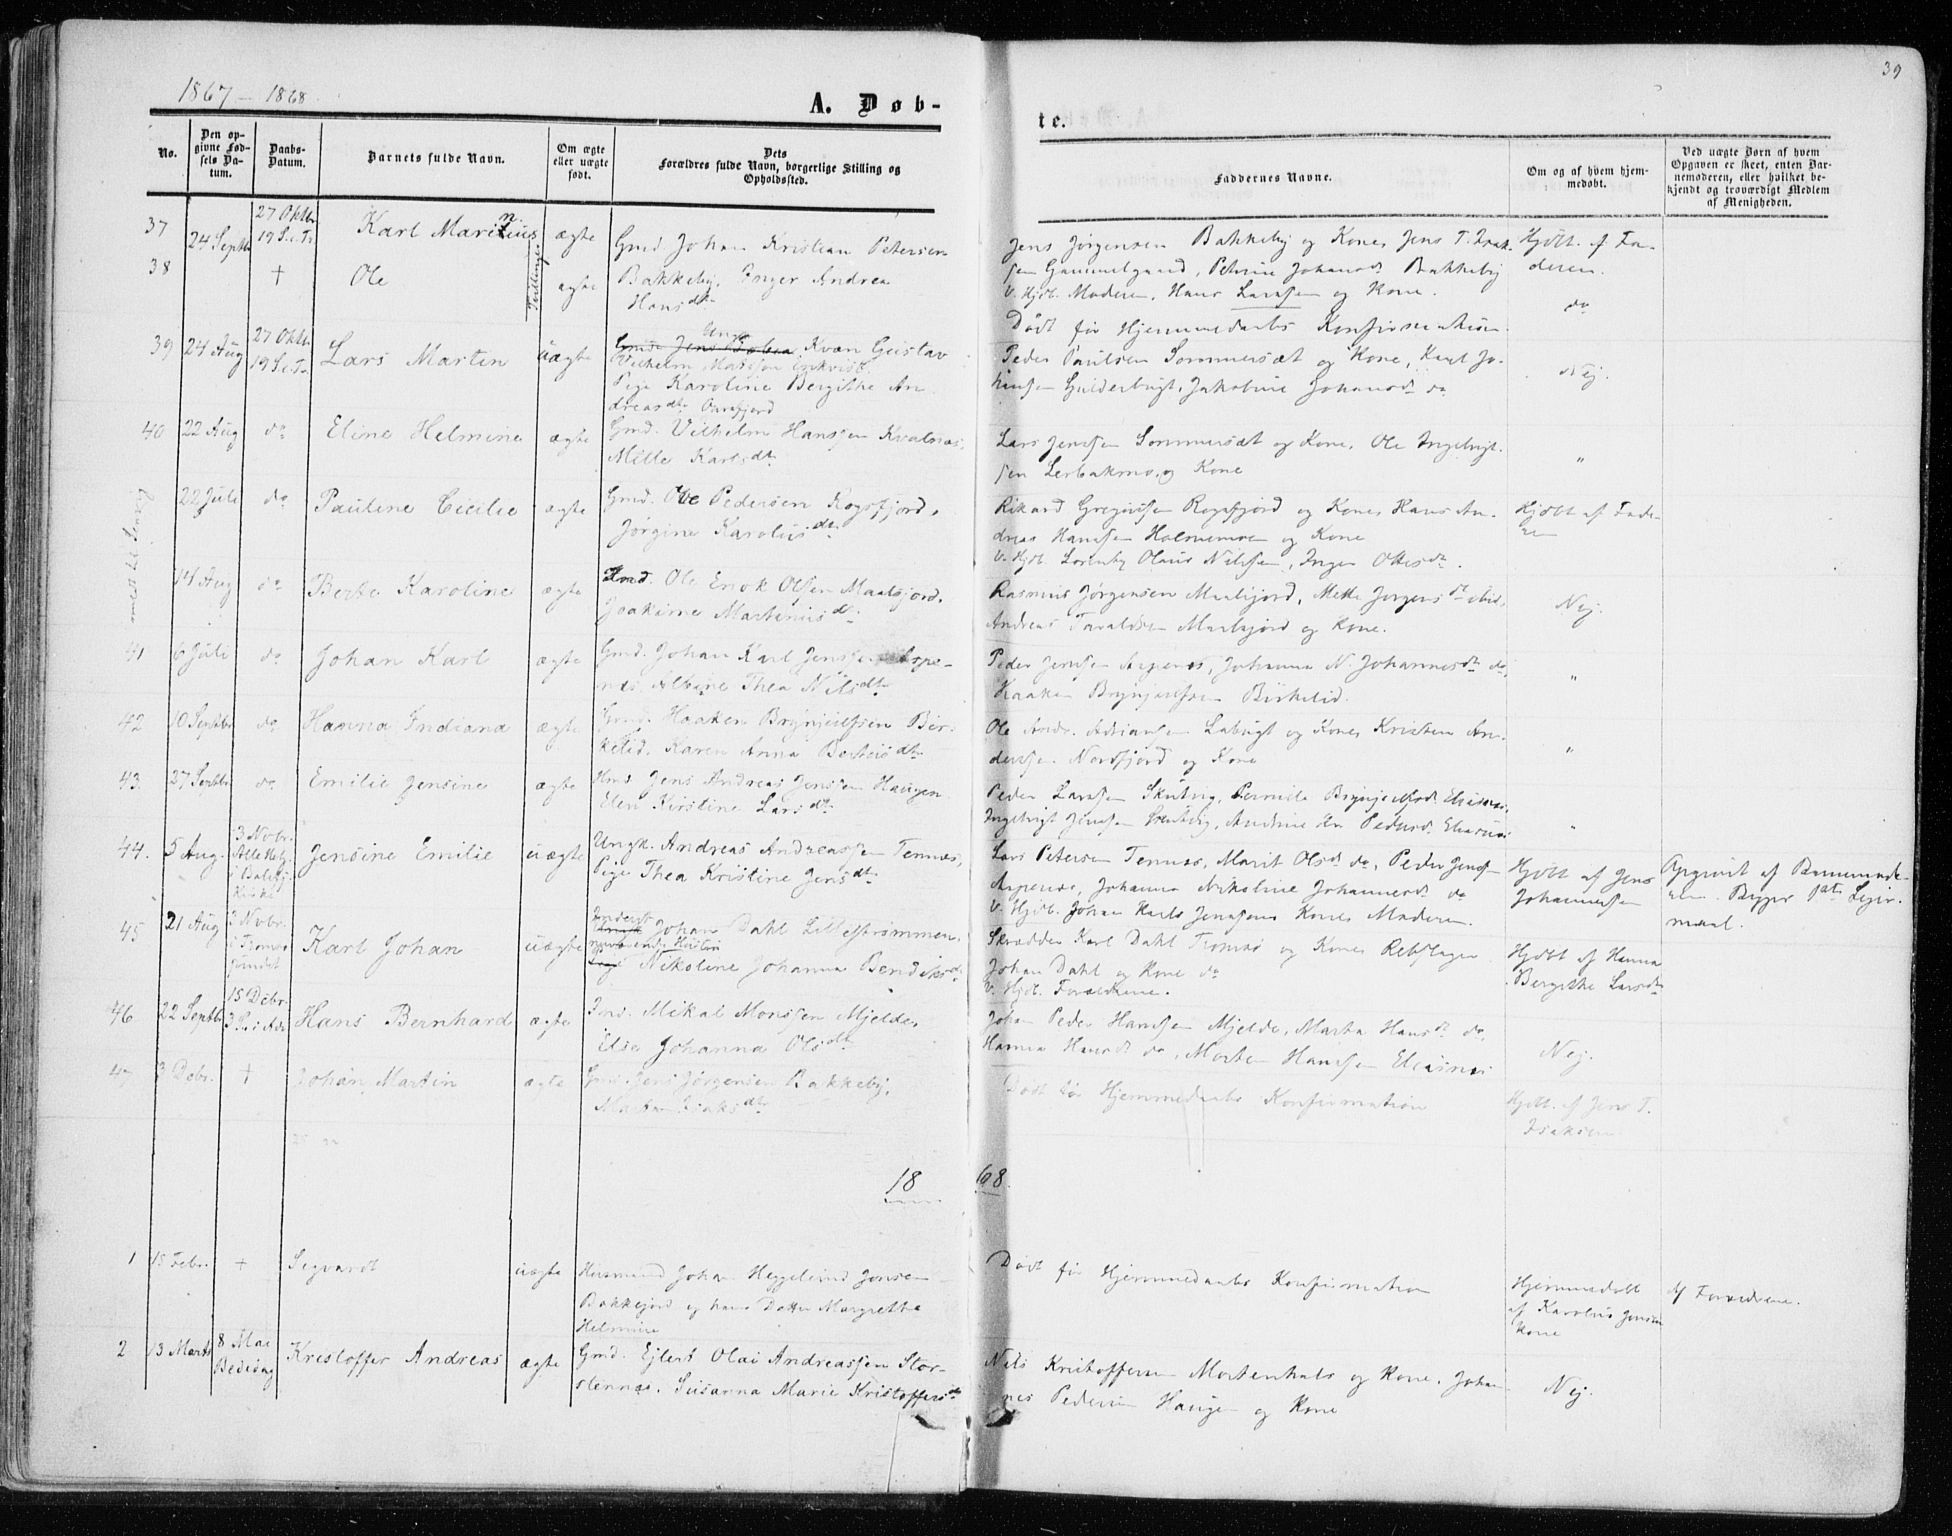 1867 - 1868
39
A. Døb-
te.
No.
Den op-
givne Fød-
sels Da-
tum.
Daabs-
Datum.
Barnets fulde Navn.
Om ægte
eller uægte
født.
Dets
Forældres fulde Navn, borgerlige Stilling og
Opholdssted.
Faddernes Navne.
Om og af hvem hjem-
medøbt.
Ved uægte Børn af hvem
Opgaven er skeet, enten Bar-
nemoderen, eller hvilket be-
kjendt og troværdigt Medlem
af Menigheden.
37
24 Septbr
27 Oktbr
19 S. e. Tr.
Karl Marinius
Tvillinger
ægte
Gmd Johan Kristian Petersen
Bakkeby, Inger Andrea
Hansdtr
Jens Jørgensen Bakkeby og Kone, Jens T. Isak-
sen Gammelgaard, Petrine Johansdr Bakkeby
v. Hjdb. Moderen, Hans Larssen og Kone.
Hjdbt. af Fa-
deren.
38
+
Ole
ægte
Dødt før Hjemmedaabs Konfirmation
do
39
24 Aug
27 Oktbr
19 S. e. Tr.
Lars Martin
uægte
Kvæn Gustav
Pige Karoline Bergithe An-
dreasdtr
Peder Paulsen Sommersæt og Kone, Karl Jo-
hansen Gulderbugt, Jakobine Johansdr do
Nej.
40
22 Aug
do
Eline Helmine
ægte
Gmd. Vilhelm Hanssen Kvalnæs,
Mette Karlsdtr
Lars Jenssen Sommersæt og Kone, Ole Ingebrigt-
sen Lerbakmo, og Kone
"
22 Juli
do
Pauline Cicilie
ægte
Gmd. Ole Pedersen Rogsfjord,
Jørgine Karolusdtr
Rikard Gregusen Rogsfjord og Kone, Hans An-
dreas Hanssen Holmemoen og Kone
v. Hjdb. Olaus Nilssen, Inger Olesdr.
Hjdbt af Fade-
ren
14 Aug
do
Berte Karoline
ægte
Ole Enok Olsen Maalsjord,
Joakime Martinusdtr
Rasmus Jørgensen Maalsjord, Mette Jørgensdr ibid,
Andreas Taraldsen Maalsjord og Kone.
Nej.
41
6 Juli
do
Johan Karl
ægte
Gmd. Johan Karl Jenssen Aspe-
næs, Albine Thea Nilsdtr
Peder Jenssen Aspenæs, Johanna N. Johannesdr do,
Haaken Brynjulfsen Birkelid.
"
42
10 Septbr
do
Hanna Indiana
ægte
Gmd. Haaken Brynjulfsen Bir-
kelid, Karen Anna Bertheusdtr
Ole Andr. Adriansen Labugt og Kone, Kristen An-
derssen Nordfjord og Kone
"
43.
27 Septbr
do
Emilie Jensine
ægte
Hmd Jens Andreas Jenssen Haugen
Elen Kirstine Larsdtr
Peder Larssen Skutvig, Pernille Brynjulfsdr. Eliasnæs,
Ingebrigt Jenssen Skutvig, Pedersdr. Eliasnæs
"
44.
5 Aug.
3 Novbr.
Alle Helg.
i Balsfj.
Kirke
Jensine Emilie
uægte
Ungk. Andreas Andreassen Tennæs,
Pige Thea Kristine Jensdtr
Lars Petersen Tennæs, Marit Olsdr do, Peder Jenssen
Aspenæs, Johanna Nikoline Johannesdr do
v. Hjdb. Johan Karls Jenssens Kone, Moderen.
Hjdbt af Jens
Johannessen
Opgivet af Barnemode-
ren. Begges 1ste Leier-
maal.
45
21 Aug
3 Novbr.
i Tromsø
Karl Johan
uægte
Johan Dahl Lillestrømmen,
Nikoline Johanna Bendiksdtr
Skrædder Karl Dahl Tromsø og Kone, Rebslager
Johan Dahl og Kone do
v. Hjdb. Forældrene.
Hjdbt af Hanna
Bergithe Larsdtr
46
22 Septbr
15 Decbr.
3 S. i Adv.
Hans Bernhard
ægte
Ind. Mikal Monssen Mjelde,
Else Johanna Olsdtr
Johan Peder Hanssen Mjelde, Marta Hansdr do,
Hanna Hansdr do, Morten Hanssen Eliasnæs
Nej.
47
3 Decbr.
+
Johan Martin
ægte
Gmd. Jens Jørgensen Bakkeby,
Isaksdtr
Dødt før Hjemmedaabs Konfirmation
Hjdbt. af Jens T.
Isaksen
18 68.
1
15 Febr.
+
Segvardt
uægte
Husmand Johan Heggelund Jensen
Bakkejord og hans Datter Margrethe
Helmine
Dødt før Hjemmedaabs Konfirmation
Hjemmedøbt
af Karolus Jensens
Kone
Af Forældrene.
2
13 Marts
8 Mai
Bededag
Kristoffer Andreas
ægte
Gmd. Ejlert Olai Andreassen Stor-
stennæs, Susanna Marie Kristoffersdtr
Nils Kristoffersen Mortenhals og Kone, Johan-
nes Pedersen Haugen og Kone
Nej.